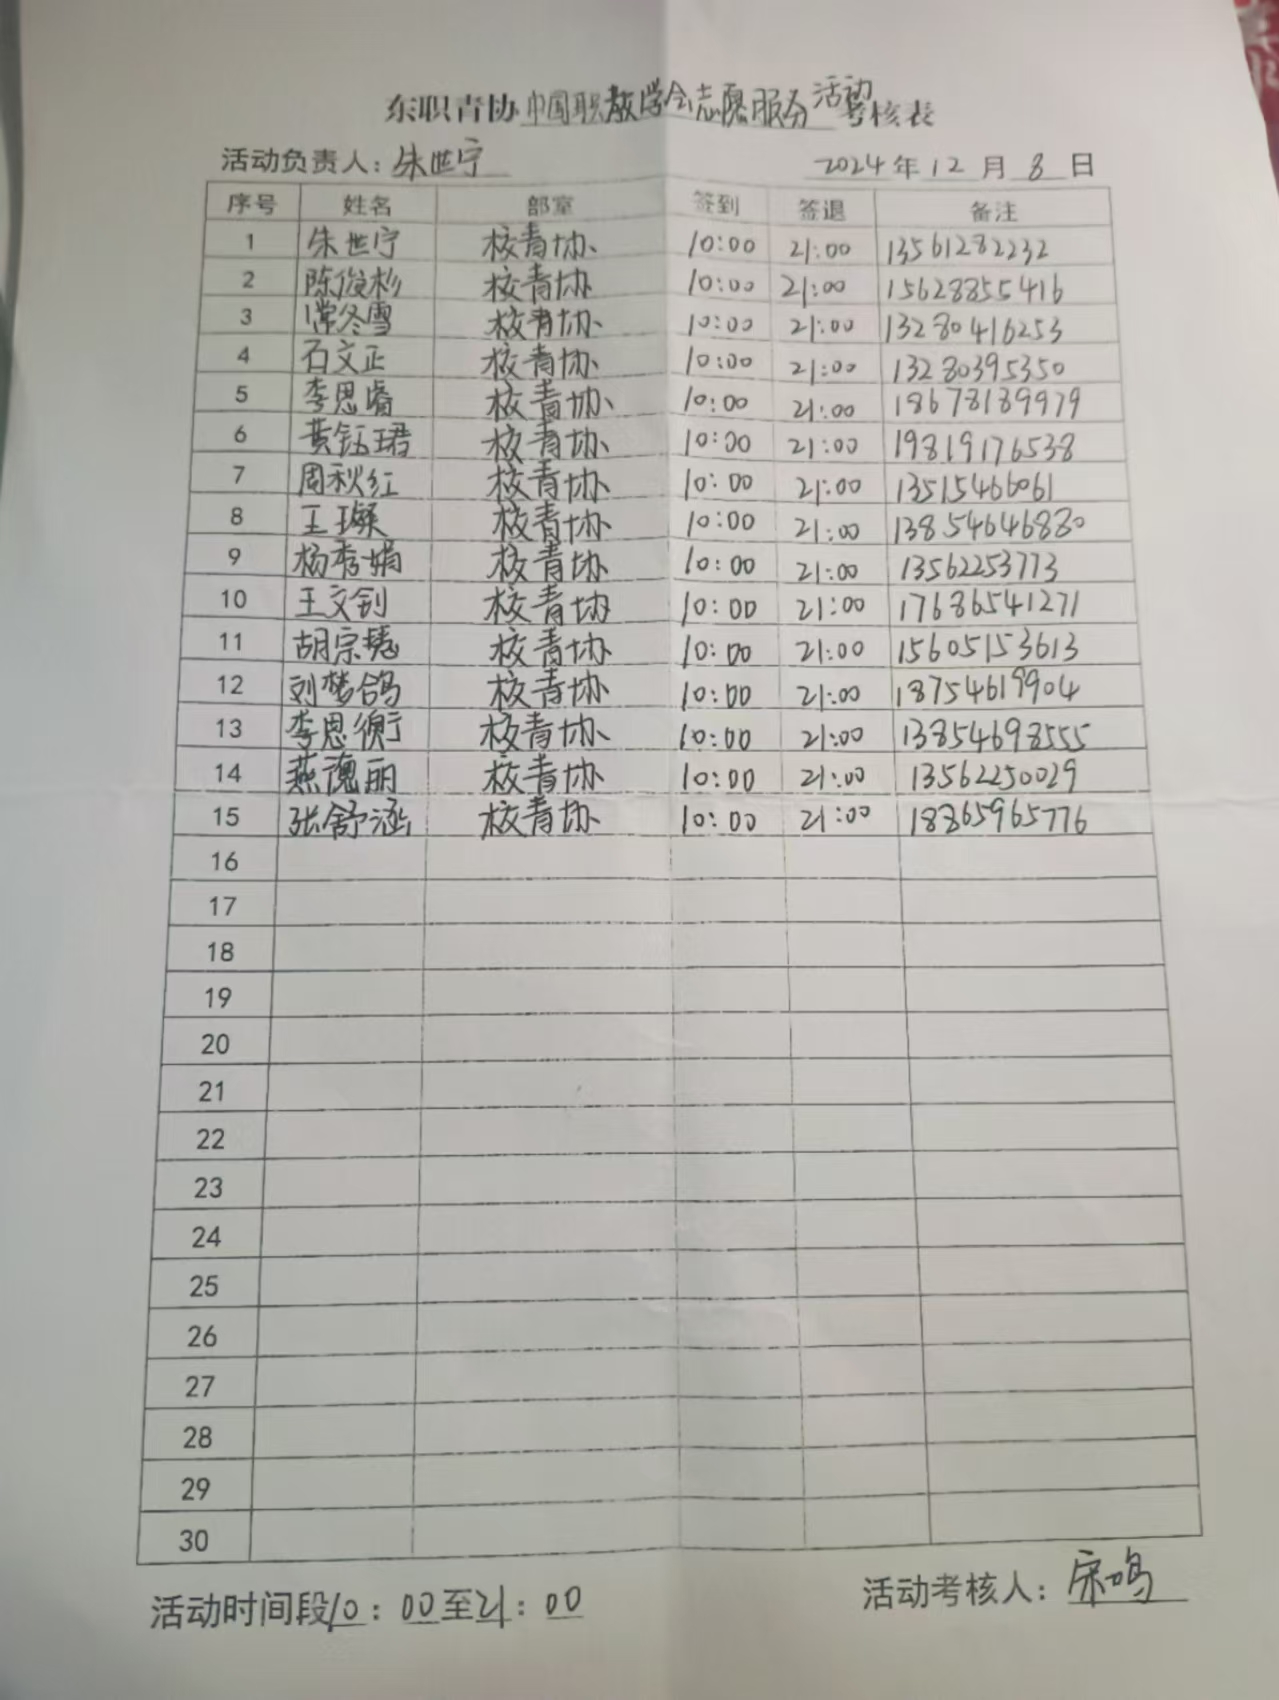 东职青协中国职教学会志愿服务活动考核表
活动负责人：朱世宁 2024年12月8日
序号 姓名 部室 签到 签退 备注
1 朱世宁 校青协 10:00 21:00 13561282232
2 陈俊杉 校青协 10:00 21:00 15628855416
3 常冬雪 校青协 10:00 21:00 13280416253
4 石文正 校青协 10:00 21:00 13280395350
5 李思睿 校青协 10:00 21:00 18678189979
6 黄钰珺 校青协 10:00 21:00 19819176538
7 周秋红 校青协 10:00 21:00 13515466061
8 王璨 校青协 10:00 21:00 13854646880
9 杨秀娟 校青协 10:00 21:00 13562253773
10 王文钊 校青协 10:00 21:00 17686541271
11 胡宗慧 校青协 10:00 21:00 15605153613
12 刘梦鸽 校青协 10:00 21:00 18754619904
13 李思衡 校青协 10:00 21:00 13854698555
14 燕瑰丽 校青协 10:00 21:00 13562250029
15 张舒涵 校青协 10:00 21:00 18865965776
16
17
18
19
20
21
22
23
24
25
26
27
28
29
30
活动时间段10：00至21：00 活动考核人：宋鸣